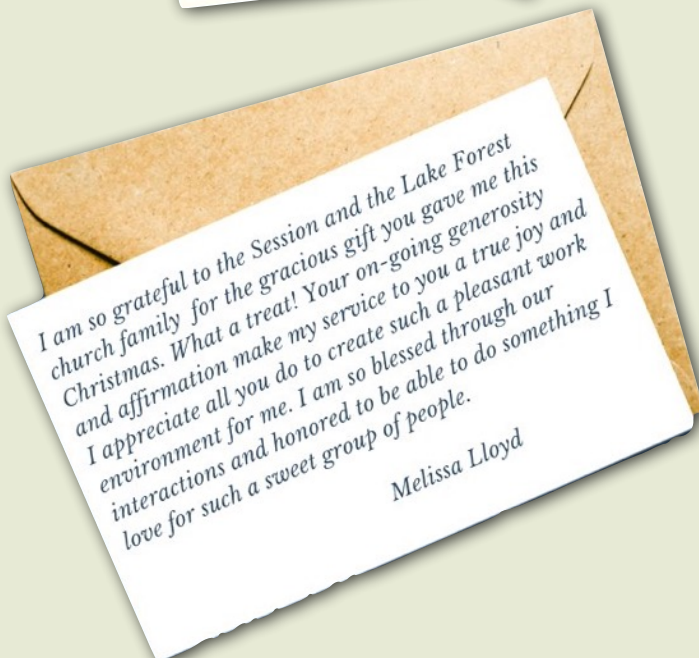 I am so grateful to the Session and the Lake Forest
church family for the gracious gift you gave me this
Christmas. What a treat! Your on-going generosity
and affirmation make my service to you a true joy and
I appreciate all you do to create such a pleasant work
environment for me. I am so blessed through our
interactions and honored to be able to do something I
love for such a sweet group of people.
Melissa Lloyd